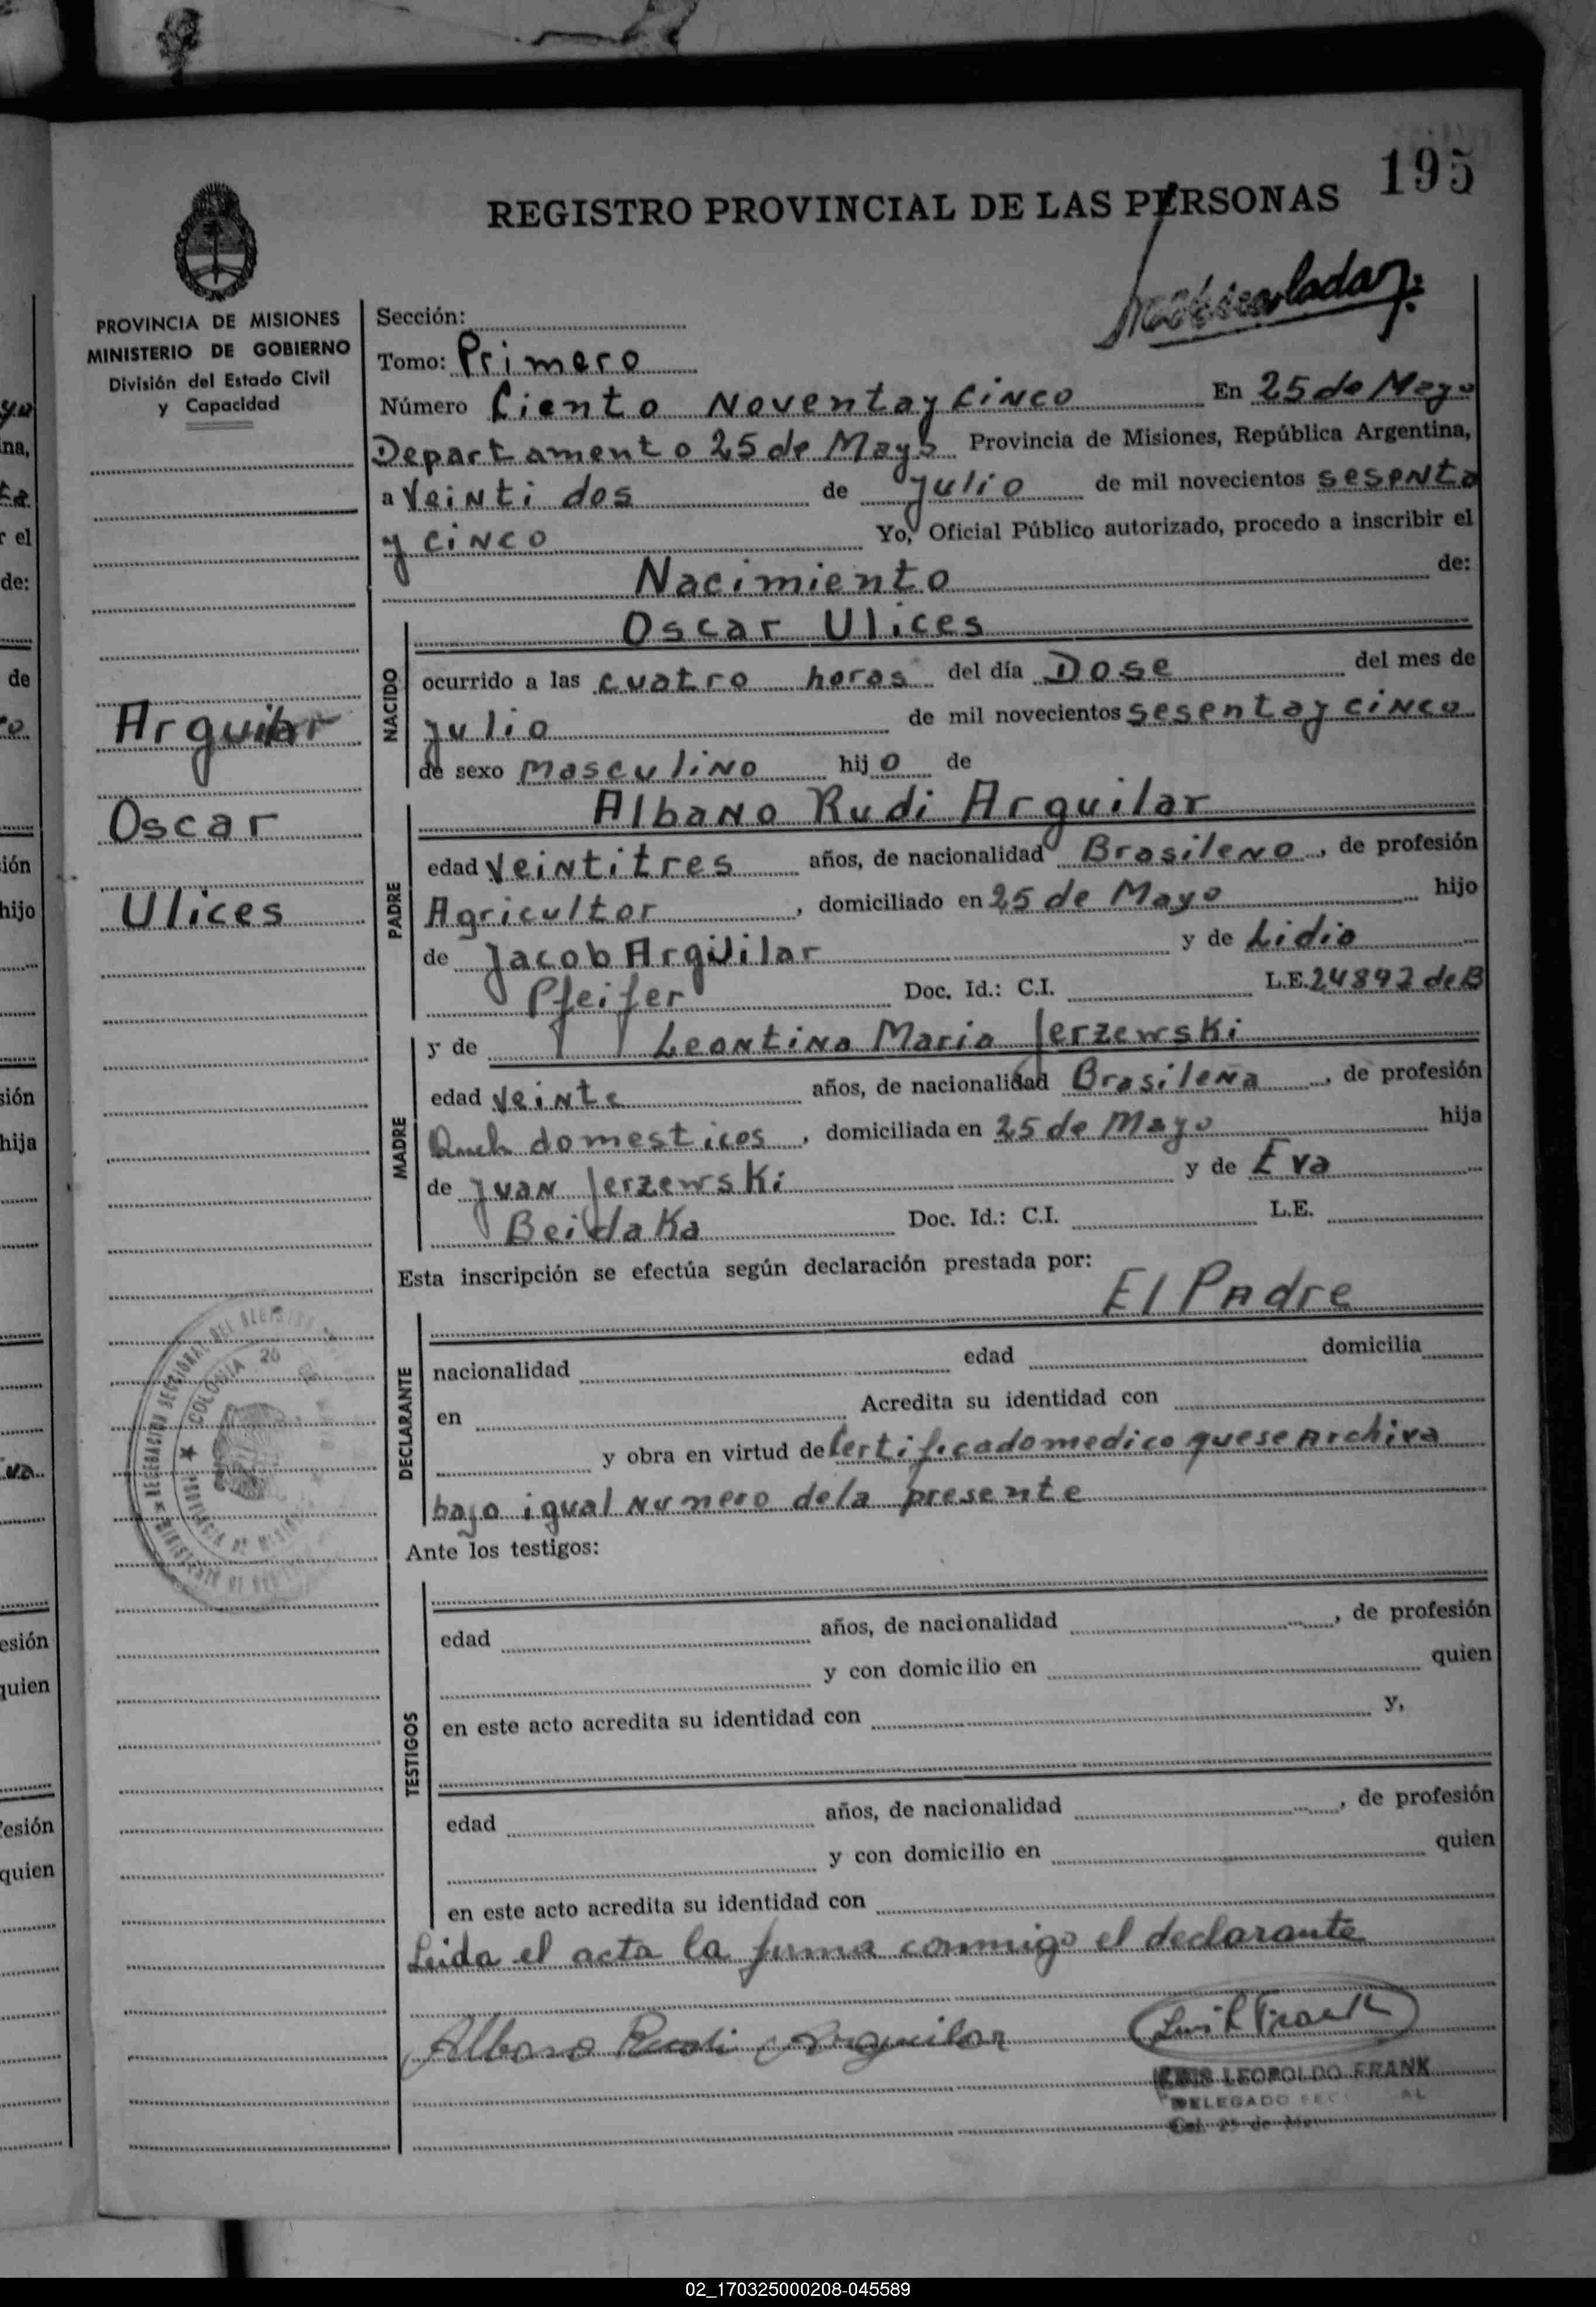 195
REGISTRO PROVINCIAL DE LAS PERSONAS
PROVINCIA DE MISIONES
MINISTERIO DE GOBIERNO
División del Estado Civil
y Capacidad
Arguilar
Oscar
Ulices
Sección:
Tomo: Primero
Número Ciento Noventa y Cinco En 25 de Mayo
Departamento 25 de Mayo Provincia de Misiones, República Argentina,
a Veinti dos de Julio de mil novecientos sesenta
y cinco Yo, Oficial Público autorizado, procedo a inscribir el
Nacimiento de:
Oscar Ulices
NACIDO
ocurrido a las cuatro horas del día Dose del mes de
Julio de mil novecientos sesenta y cinco
de sexo masculino hijo de
Albano Rudi Arguilar
PADRE
edad Veintitres años, de nacionalidad Brasileno, de profesión
Agricultor, domiciliado en 25 de Mayo hijo
de Jacob Argüilar y de Lidia
Pfeifer Doc. Id.: C.I. L.E. 24892 de B
y de Leontina Maria Jerzewski
MADRE
edad Veinte años, de nacionalidad Brasileña, de profesión
domesticos, domiciliada en 25 de Mayo hija
de Juan Jerzewski y de Eva
Beidaka Doc. Id.: C.I. L.E.
Esta inscripción se efectúa según declaración prestada por:
El Padre
DECLARANTE
nacionalidad edad domicilia
en Acredita su identidad con
y obra en virtud de Certificado medico que se Archiva
bajo igual numero de la presente
Ante los testigos:
TESTIGOS
edad años, de nacionalidad , de profesión
y con domicilio en quien
en este acto acredita su identidad con y,
edad años, de nacionalidad , de profesión
y con domicilio en quien
en este acto acredita su identidad con
Leida el acta la firma conmigo el declarante
Albano Rudi Arguilar
LUIS LEOPOLDO FRANK
DELEGADO
Col. 25 de Mayo
02_170325000208-045589